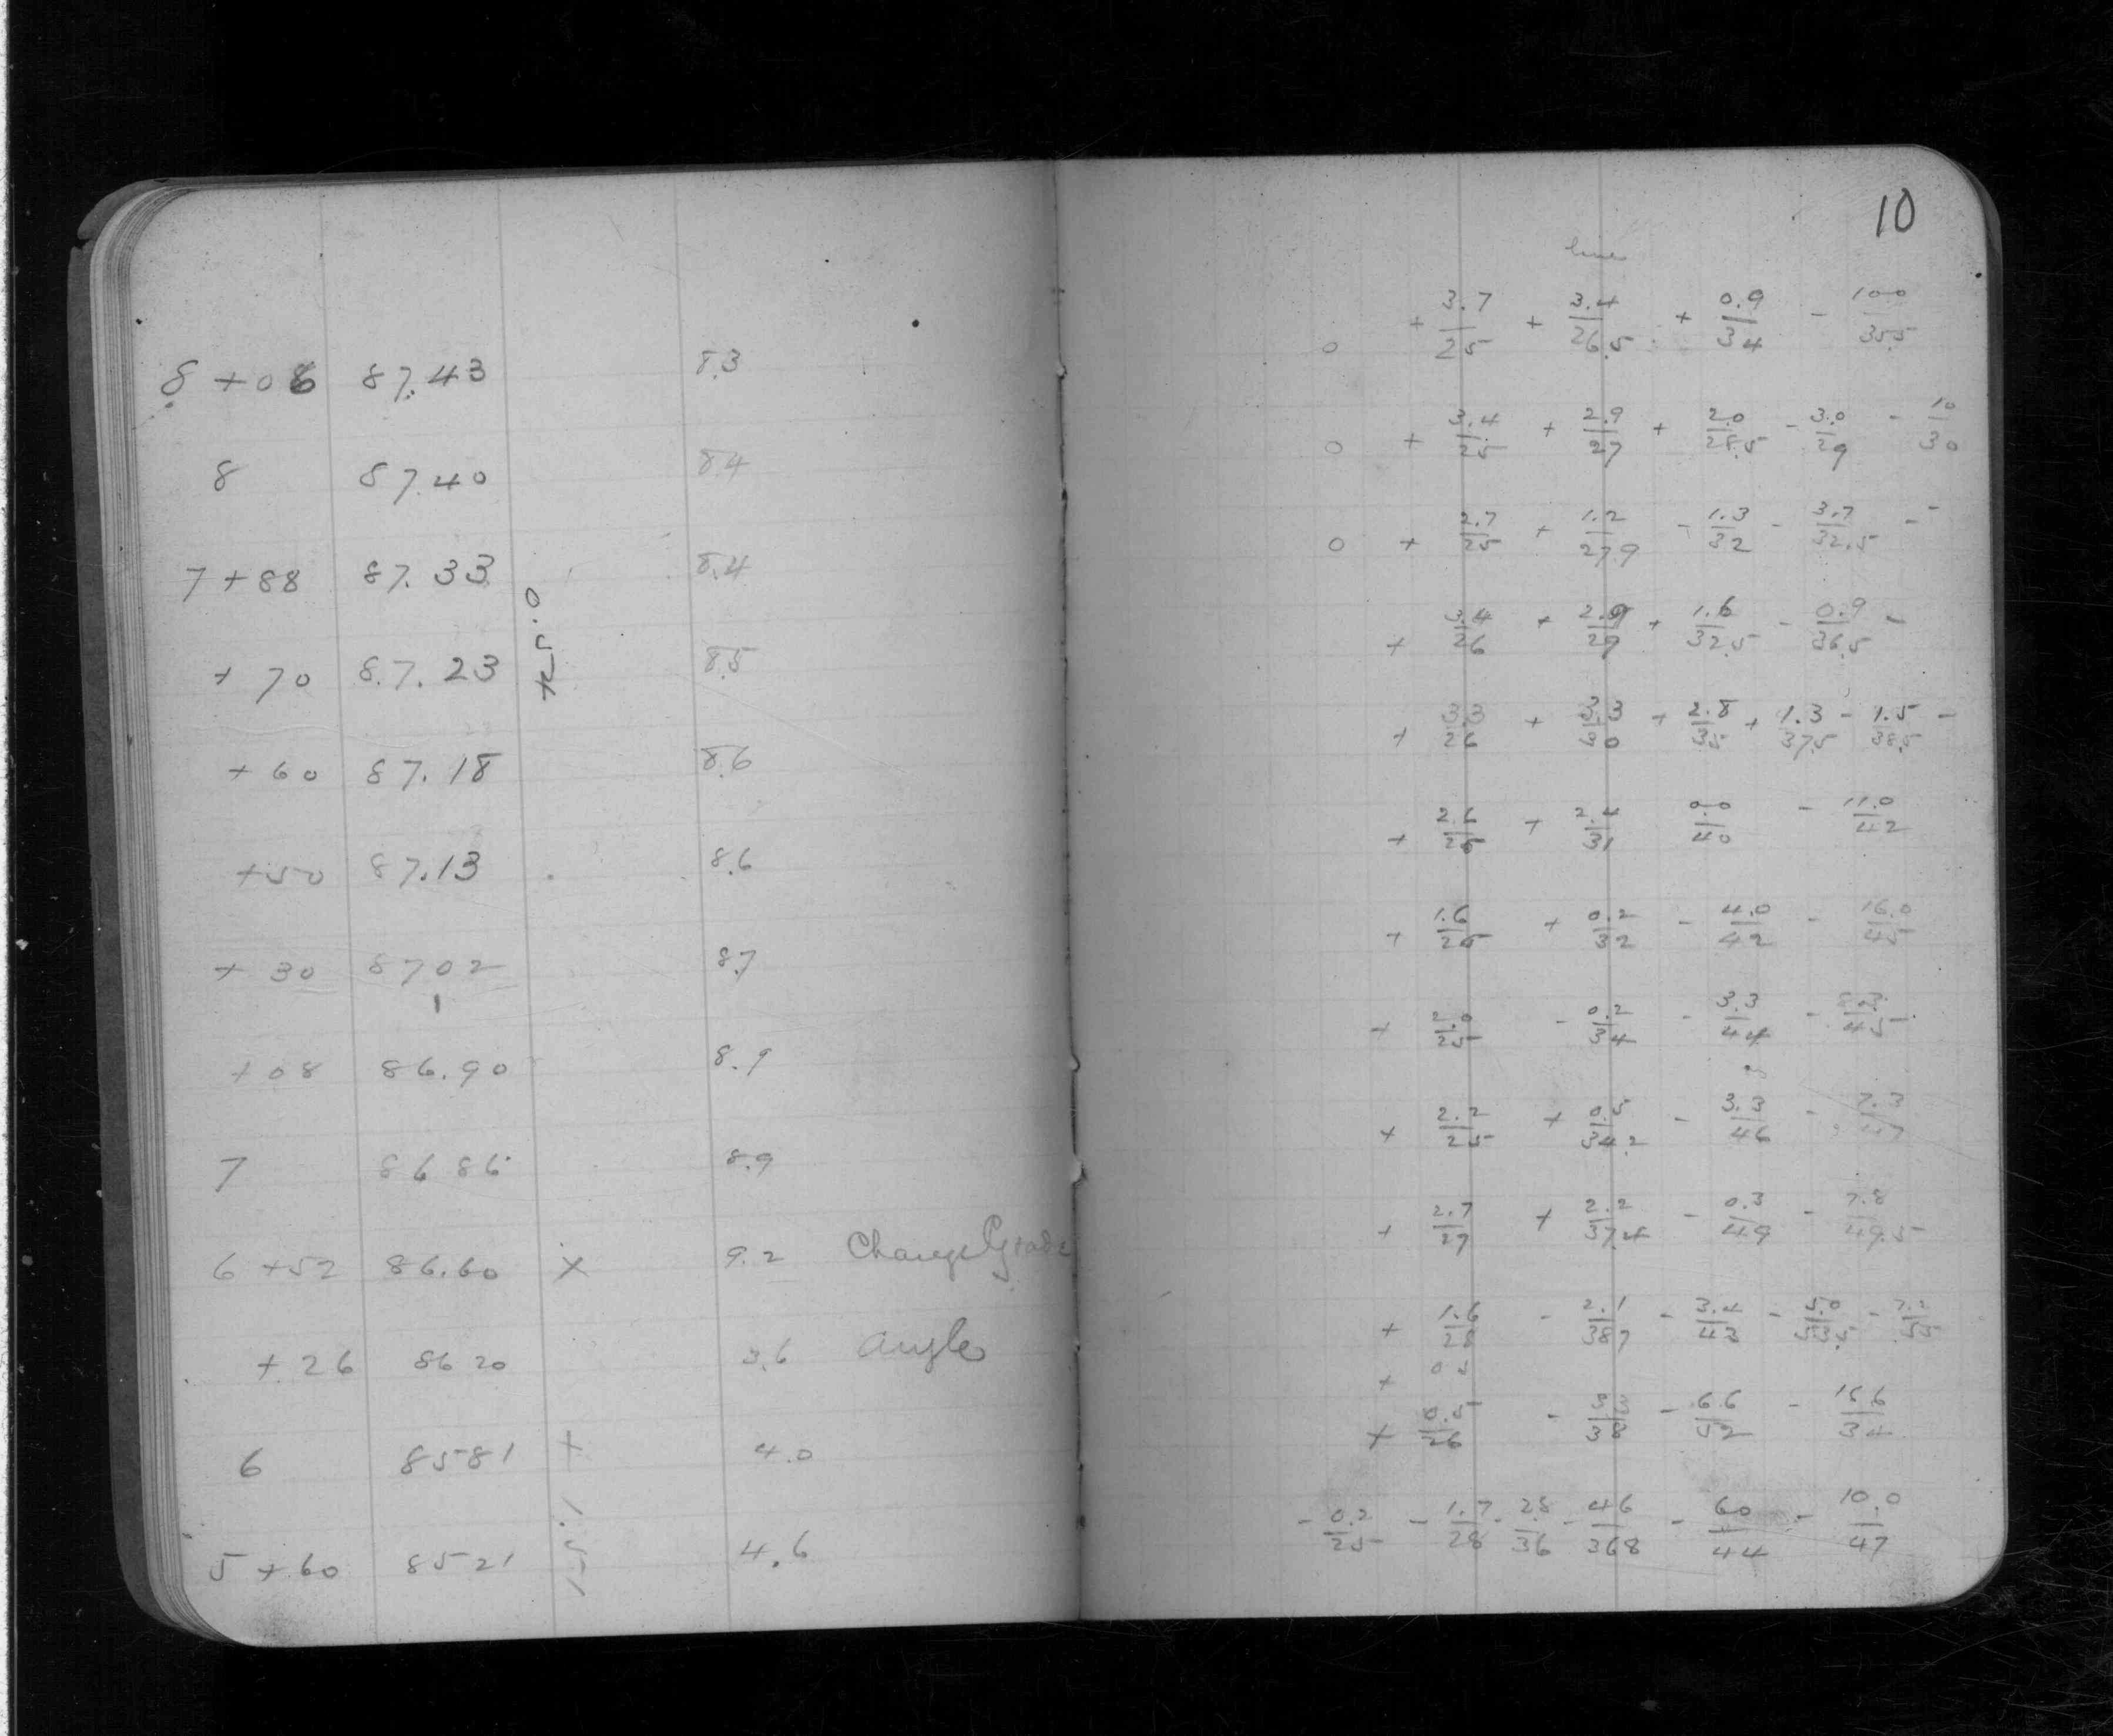 10
line
8 +06 87.43 8.3
8 87.40 8.4
7 +88 87.33 8.4
+ 70 87.23 8.5
+ 60 87.18 8.6
+50 87.13 8.6
+ 30 8702 8.7
+08 86.90 8.9
7 86 86 8.9
6 +52 86.60 x 9.2 Change Grade
+ 26 86 20 3.6 Angle
6 85 81 + 4.0
5 +60 85 21 4.6
0 + 3.7/25 + 3.4/26.5 + 0.9/34 - 100/35.5
0 + 3.4/25 + 2.9/27 + 2.0/28.5 - 3.0/29 - 10/30
0 + 2.7/25 + 1.2/27.9 - 1.3/32 - 3.7/32.5 -
+ 3.4/26 + 2.9/29 + 1.6/32.5 - 0.9/36.5 -
+ 3.3/26 + 3.3/30 + 2.8/35 + 1.3/37.5 - 1.5/38.5 -
+ 2.6/25 + 2.4/31 0.0/40 - 11.0/42
+ 1.6/25 + 0.2/32 - 4.0/42 - 16.0/45
+ 2.0/25 - 0.2/34 - 3.3/44
+ 2.2/25 + 0.5/34.2 - 3.3/46 - 7.3/47
+ 2.7/27 + 2.2/37.4 - 0.3/49 - 7.8/49.5
+ 1.6/28 - 2.1/387 - 3.4/43 - 5.0/53.5 - 7.2/55
+ 26 - 38 - 6.6/52 - 15.6/34
- 0.2/25 - 1.7/28 - 2.8/36 - 46/368 - 60/44 - 10.0/47